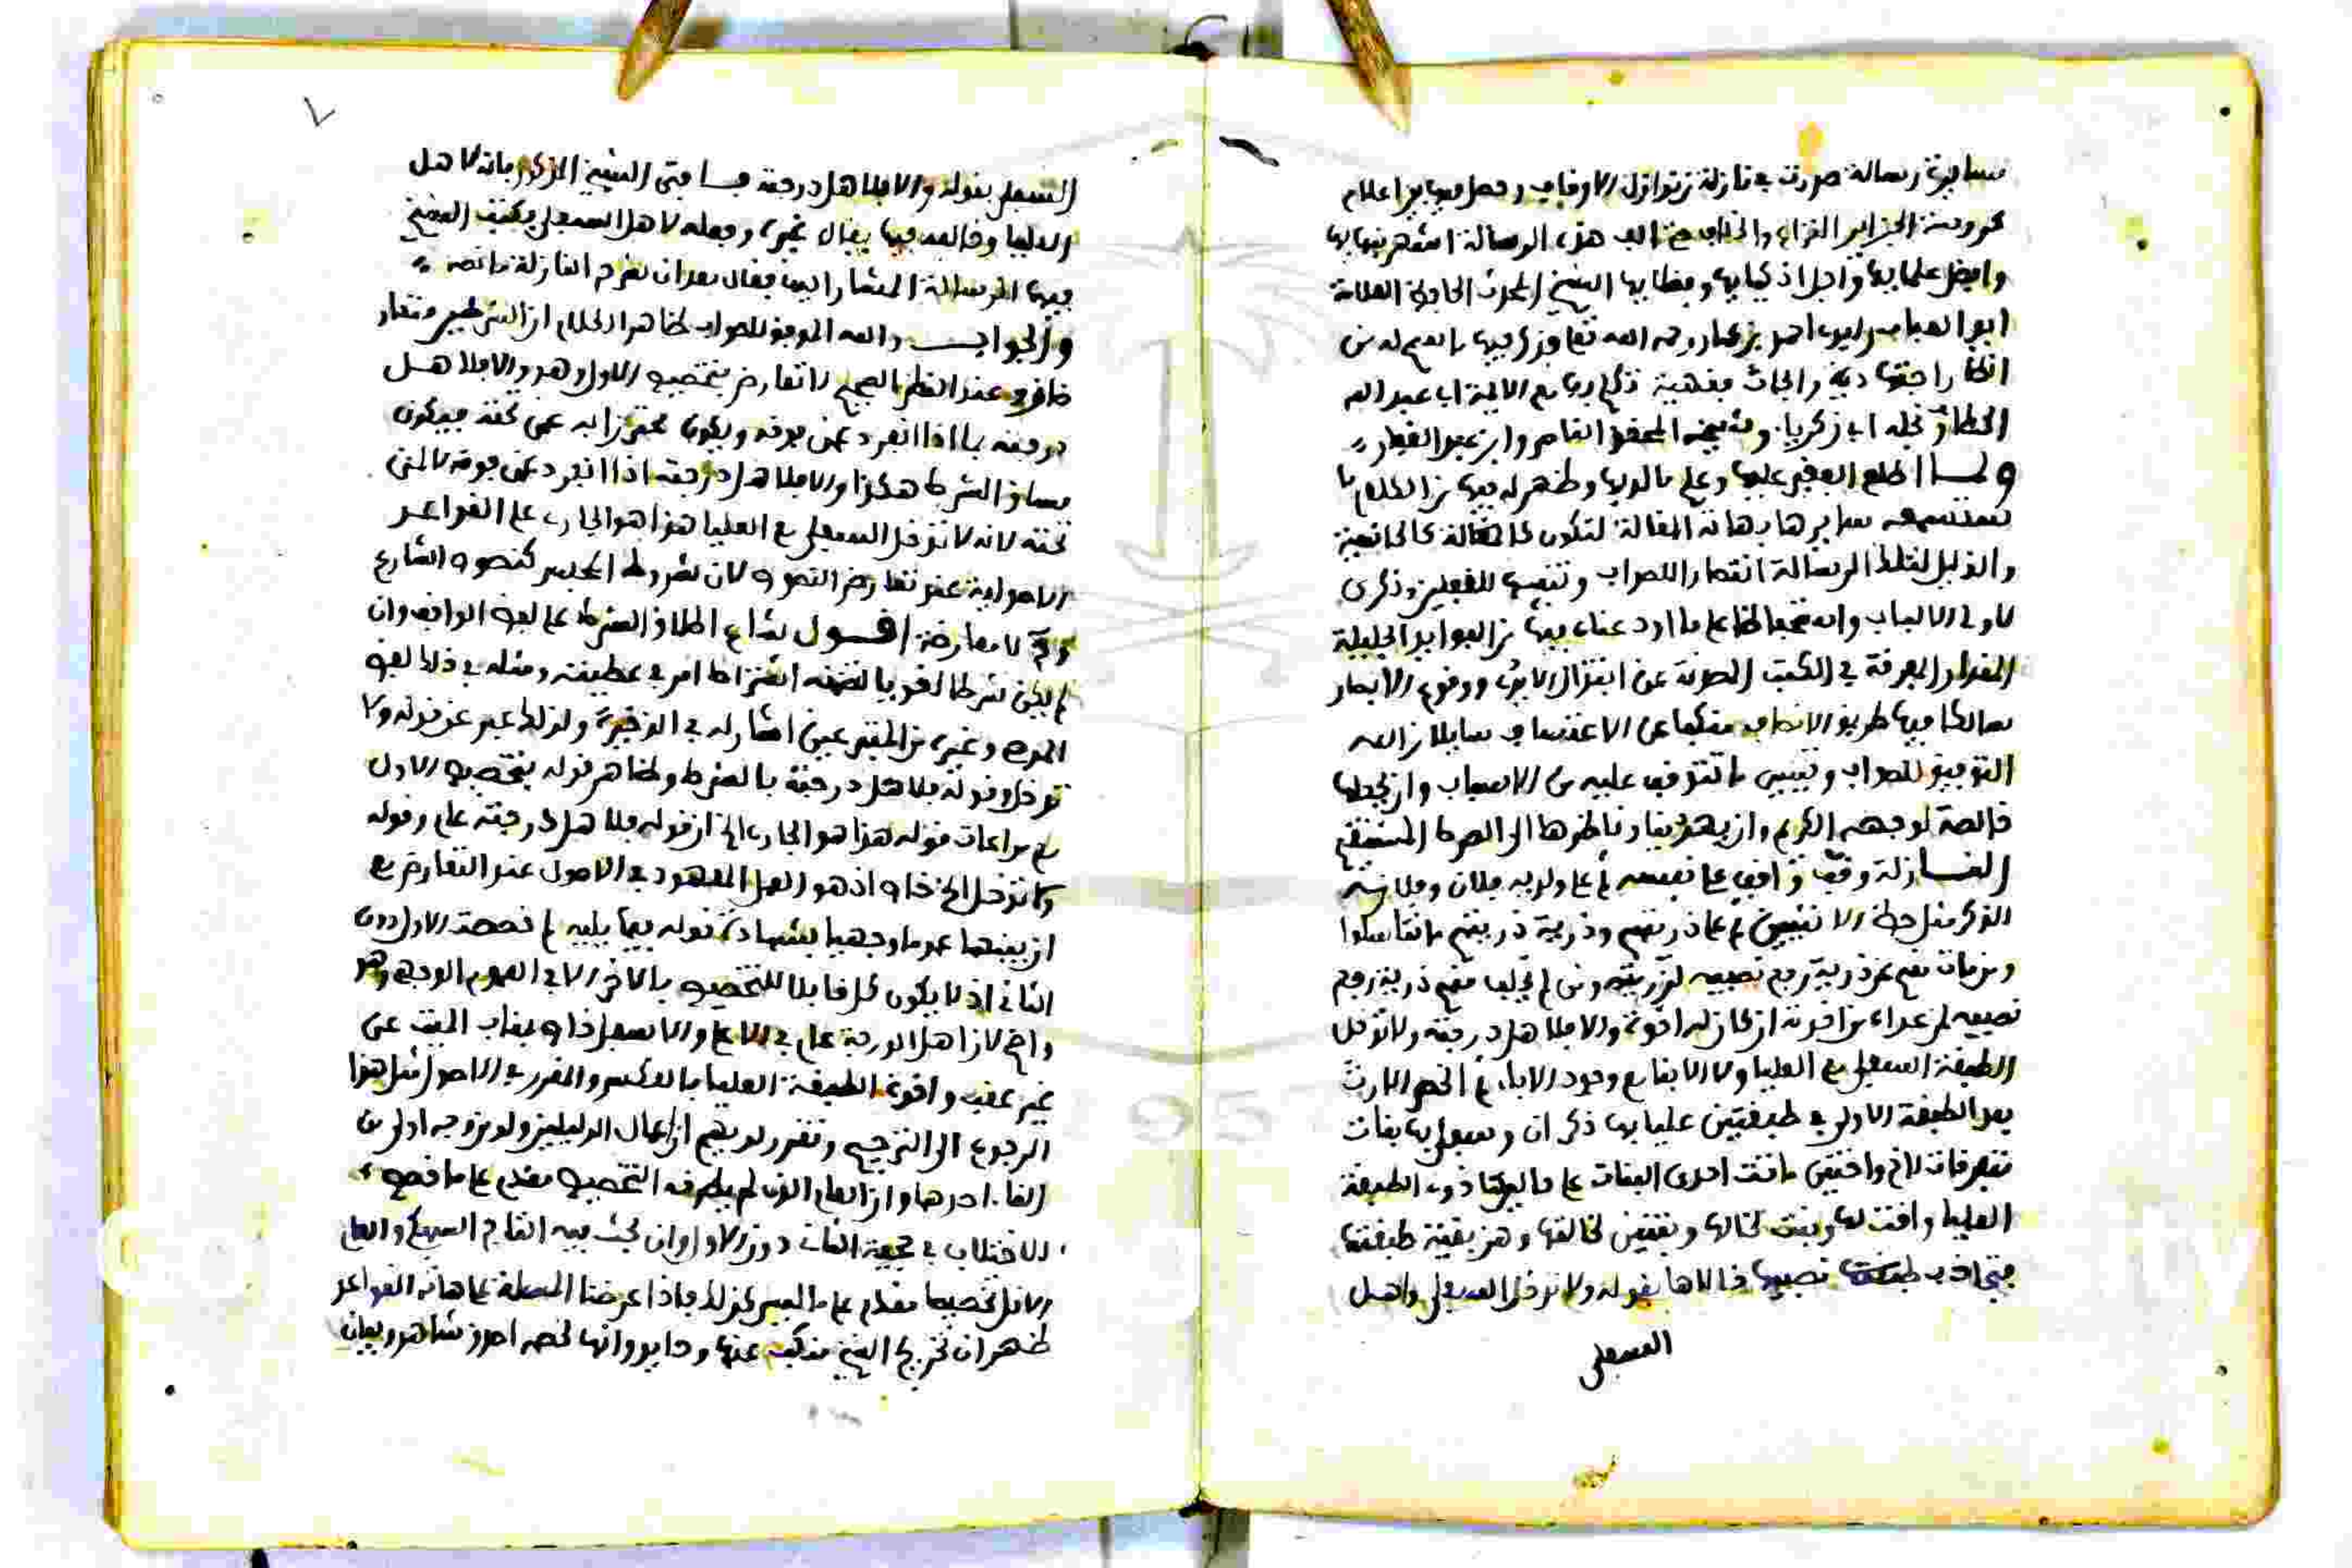 مسايرة رسالة صدرت في نازلة من نوازل الاوقاف وحصل فيها بين اعلام
محروسة الجزاير النزاع والخلاف مع الب هذه الرسالة اشهر نبهايها
وافضل علمايها واجل اذكيايها وفضلايها الشيخ المحدث الحاج العلامة
ابو العباس سيدي احمد بن عمار رحمه الله تعالى وذكر فيها ما وقع له من
انظار اجتهادية وابحاث فقهية ذكرها مع الايمة ابي عبد الله
الحطاب ونجله ابي زكريا وشيخه المحقق الناصر وابن عبد الغفار
ولما اطلع الفقير عليها وعلى ما لديها وظهر له فيها من الكلام ما
ستسمعه سايرها بهاته المقالة لتكون لها كالخاتمة
والذيل لتلك الرسالة انتصارا للصواب وتنبيها للغفلين وذكرى
لاولي الالباب وانه محافظا على ما اودعناه فيها من الفوايد الجليلة
المقدار المعرفة في الكتب المصونة عن ابتذال الايدي ووقوع الابصار
سالكا فيها طريق الانصاف متنكبا عن الاعتساف سايلا من الله
التوفيق للصواب وتيسير ما تتوقف عليه من الاسباب وان يجعلها
خالصة لوجهه الكريم وان يهدينا وناظرها الى الصراط المستقيم
النازلة وقف واقف على نفسه ثم على ولديه فلان وفلانة
الذكر مثل حظ الانثيين ثم على ذريتهم وذرية ذريتهم ما تناسلوا
ومن مات منهم عن ذرية رجع نصيبه لذريته ومن لم يخلف منهم ذرية رجع
نصيبه لمن عداه من اخوته ان كان له اخوة والا فلاهل درجته ولا تدخل
الطبقة السفلى مع العليا ولا الابنا مع وجود الاباء ثم انحصر الارث
بعد الطبقة الاولى في طبقتين عليايها ذكران وسفلايها بنات
متفرقات لاخ واختين ماتت احدى البنات على ما
العليا واخت لها وبنت لخالها وبنتين لخالتها وهن بقية طبقتها
نصيبها خالاها بقوله ولا تدخل السفلى واهل
السفلى
السفلى بقوله والا فلاهل درجته فافتى الشيخ المذكور بانه لاهل
العليا وخالفه فيها بقال غيره وجعله لاهل السفلى فكتب الشيخ
فيها الرسالة المشار اليها فقال بعد ان نقل النازلة ما نصه
والجواب والله الموفق للصواب ظاهر الكلام ان الشرطين
عند النظر الصحيح لا تعارض بتخصيص الاول وهو والا فلاهل
درجته بما اذا انفرد عمن فوقه ويكون محترزا به عمن تحته فيكون
مساق الشرط هكذا والا فلاهل درجته اذا انفرد عمن فوقه لا لمن
تحته لانه لا تدخل السفلى مع العليا هذا هو الجاري على القواعد
الاصولية عند تعارض النصوص لان شروط المحبس كنصوص الشارع
لا معارضة اقول اطلاق الشرط على لفظ الواقف وان
لم يكن شرطا لغويا لتضمنه اشتراط امر في عطيته ومثله في ذلك لفظ
وغيره من المتبرعين اشار له في الذخيرة ولذلك عبر عن قوله ولا
تدخل وقوله فلاهل درجته بالشرط وظاهر قوله بتخصيص الاول
مع مراعات قوله هذا هو الجاري الخ ان قوله فلاهل درجته عام وقوله
ولا تدخل الخ خاص اذ هو العمل المعهود في الاصول عند التعارض مع
ان بينهما عموما وجهيا بشهادة قوله فيما يليه لم خصصت الاول دون
الثاني اذ لا يكون كل قابلا للتخصيص بالاخر الا في العموم الوجهي وهو
واضح لان اهل الدرجة عام في الاعلى والاسفل خاص بغياب الميت عن
غير عقب واخوة الطبقة العليا بالعكس والمقرر في الاصول مثل هذا
الرجوع الى الترجيح وتقرر لديهم ان اعمال الدليلين ولو من وجه اولى من
الغاء احدهما وان العام الذي لم يطرقه التخصيص مقدم على ما خصص
للاختلاف في حجية الثاني دون الاول وان بحث فيه التاج السبكي والعام
الاقل تخصيصا مقدم على ما ليس كذلك فاذا عرضنا المسئلة على هاته القواعد
ظهر ان تخريج الشيخ متنكب عنها وحايد وانها لخصمه اصدق شاهد وبيان